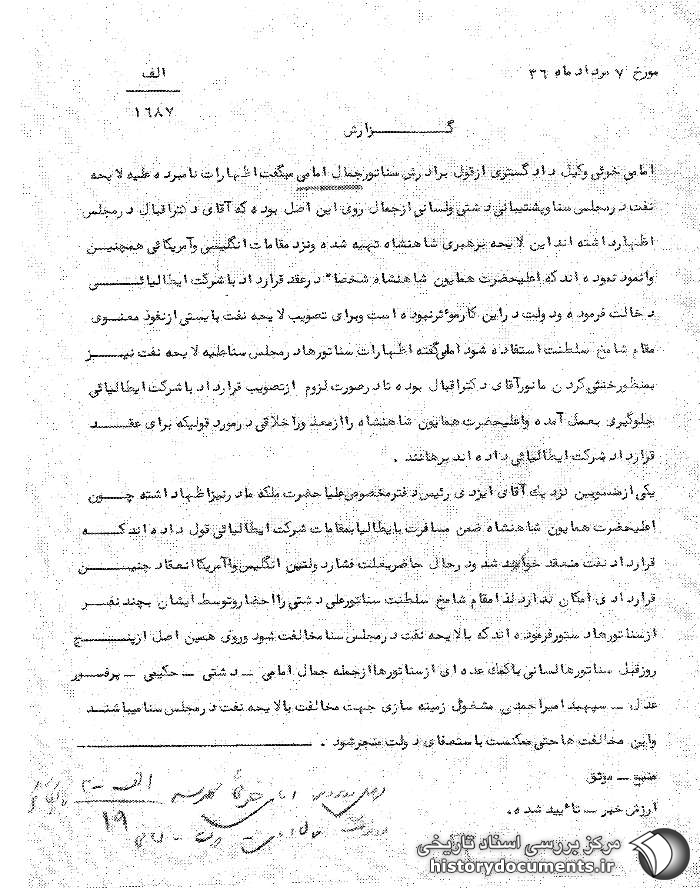 مورخ ۷ مرداد ماه ۳۶
الف
۱۶۸۷
گـــزارش
امامی خوئی وکیل دادگستری ازقول برادرش سناتورجمال امامی میگفت اظهارات نامبرده علیه لایحه
نفت درمجلس سناوپشتیبانی دشتی ولسانی ازجمال روی این اصل بوده که آقای دکتراقبال درمجلس
اظهارداشته اند این لایحه برهبری شاهنشاه تهیه شده ونزد مقامات انگلیسی وآمریکائی همچنین
وانمود نموده اند که اعلیحضرت همایون شاهنشاه شخصا" درعقد قرارداد با شرکت ایطالیائـــی
دخالت فرموده ودولت دراین کارموثرنبوده است وبرای تصویب لایحه نفت بایستی ازنفوذ معنـوی
مقام شامخ سلطنت استفاده شود امامی گفته اظهارات سناتورهادرمجلس سناعلیه لایحه نفت نیـز
بمنظورخنثی کردن مانورآقای دکتراقبال بوده تادرصورت لزوم ازتصویب قرارداد با شرکت ایطالیائی
جلوگیری بعمل آمده واعلیحضرت همایون شاهنشاه راازمحذوراخلاقی درمورد قولیکه برای عقـــد
قرارداد شرکت ایطالیائی داده اند برهانند .
یکی ازمنسوبین نزدیک آقای ایزدی رئیس دفترمخصوص علیاحضرت ملکه مادرنیزاظهارداشته چــون
اعلیحضرت همایون شاهنشاه ضمن مسافرت بایطالیابمقامات شرکت ایطالیائی قول داده اند کـــه
قرارداد نفت منعقد خواهد شد ودرحال حاضربعلت فشاردولتین انگلیس وآمریکاانعقاد چنیـــن
قراردادی امکان نداردلذامقام شامخ سلطنت سناتورعلی دشتی رااحضاروتوسط ایشان بچند نفـر
ازسناتورهادستورفرموده اند که بالایحه نفت درمجلس سنامخالفت شود وروی همین اصل ازپنــج
روزقبل سناتورهالسانی باکمک عده ای ازسناتورهاازجمله جمال امامی ـ دشتی ـ حکیمی ـ پرفسور
عدل ـ سپهبد امیراحمدی مشغول زمینه سازی جهت مخالفت بالایحه نفت درمجلس سنامیباشنـد
واین مخالفت هاحتی ممکنست باستعفای دولت منجرشود .
منبع ـ موثق
ارزش خبر ـ تائیید شده .
الف ـ ۲
۱۹
امامی خوئی
مرکز بررسی اسناد تاریخی
historydocuments.ir